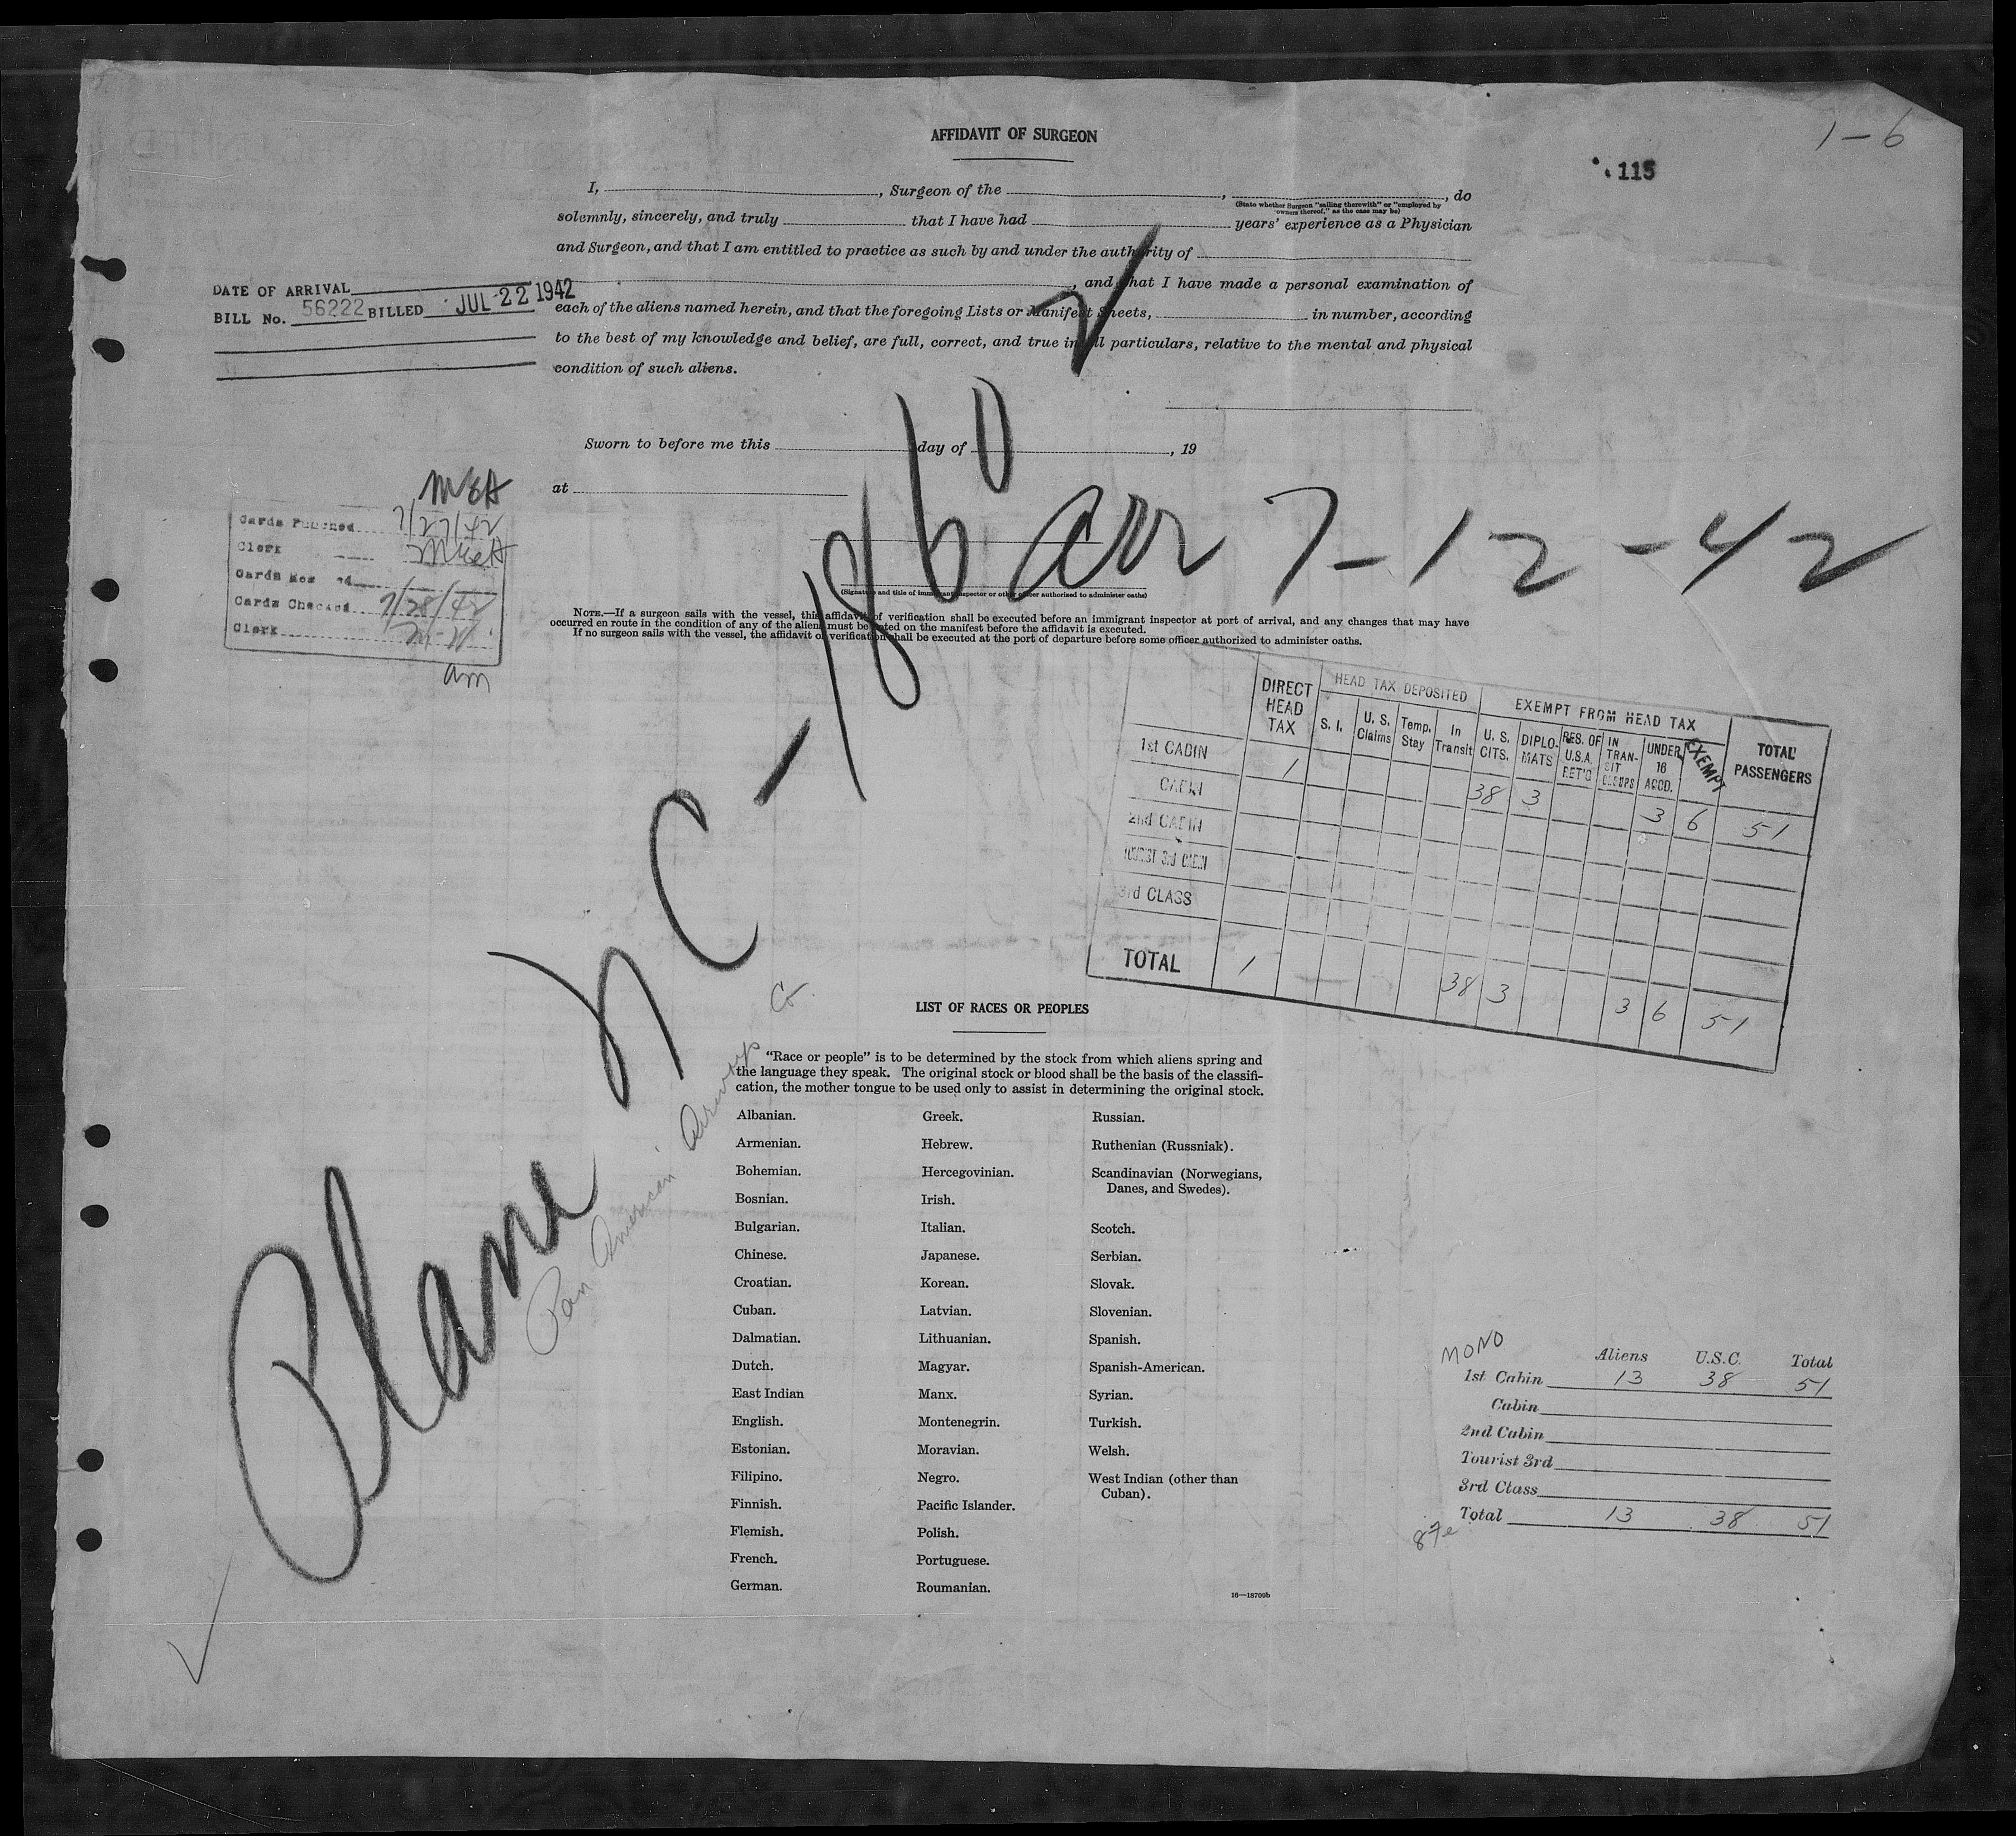 1-6
115
AFFIDAVIT OF SURGEON
I, , Surgeon of the , , do
(State whether Surgeon "sailing therewith" or "employed by
owners thereof," as the case may be)
solemnly, sincerely, and truly that I have had years' experience as a Physician
and Surgeon, and that I am entitled to practice as such by and under the authority of
, and that I have made a personal examination of
each of the aliens named herein, and that the foregoing Lists or Manifest Sheets, in number, according
to the best of my knowledge and belief, are full, correct, and true in all particulars, relative to the mental and physical
condition of such aliens.
DATE OF ARRIVAL
BILL No. 56222 BILLED JUL 22 1942
Sworn to before me this day of , 19
at
(Signature and title of immigrant inspector or other officer authorized to administer oaths)
NOTE.—If a surgeon sails with the vessel, this affidavit of verification shall be executed before an immigrant inspector at port of arrival, and any changes that may have
occurred en route in the condition of any of the aliens must be noted on the manifest before the affidavit is executed.
If no surgeon sails with the vessel, the affidavit of verification shall be executed at the port of departure before some officer authorized to administer oaths.
Cards Punched 7/27/42
Clerk
Cards Checked 7/28/42
Clerk
am
Plane NC-18610 arr 7-12-42
Pan American Airways Co.
DIRECT HEAD TAX
HEAD TAX DEPOSITED
EXEMPT FROM HEAD TAX
TOTAL PASSENGERS
S. I. U. S. Claims Temp. Stay In Transit U. S. CITS. DIPLOMATS RES. OF U.S.A. RET'D IN TRANSIT GROUPS UNDER 16 ACCD. EXEMPT
1st CABIN 1 38 3 3 6 51
CABIN
2nd CABIN
TOURIST 3rd CABIN
3rd CLASS
TOTAL 1 38 3 3 6 51
LIST OF RACES OR PEOPLES
"Race or people" is to be determined by the stock from which aliens spring and
the language they speak. The original stock or blood shall be the basis of the classifi-
cation, the mother tongue to be used only to assist in determining the original stock.
Albanian.
Armenian.
Bohemian.
Bosnian.
Bulgarian.
Chinese.
Croatian.
Cuban.
Dalmatian.
Dutch.
East Indian
English.
Estonian.
Filipino.
Finnish.
Flemish.
French.
German.
Greek.
Hebrew.
Hercegovinian.
Irish.
Italian.
Japanese.
Korean.
Latvian.
Lithuanian.
Magyar.
Manx.
Montenegrin.
Moravian.
Negro.
Pacific Islander.
Polish.
Portuguese.
Roumanian.
Russian.
Ruthenian (Russniak).
Scandinavian (Norwegians,
Danes, and Swedes).
Scotch.
Serbian.
Slovak.
Slovenian.
Spanish.
Spanish-American.
Syrian.
Turkish.
Welsh.
West Indian (other than
Cuban).
16—18709b
MONO
Aliens U.S.C. Total
1st Cabin 13 38 51
Cabin
2nd Cabin
Tourist 3rd
3rd Class
Total 13 38 51